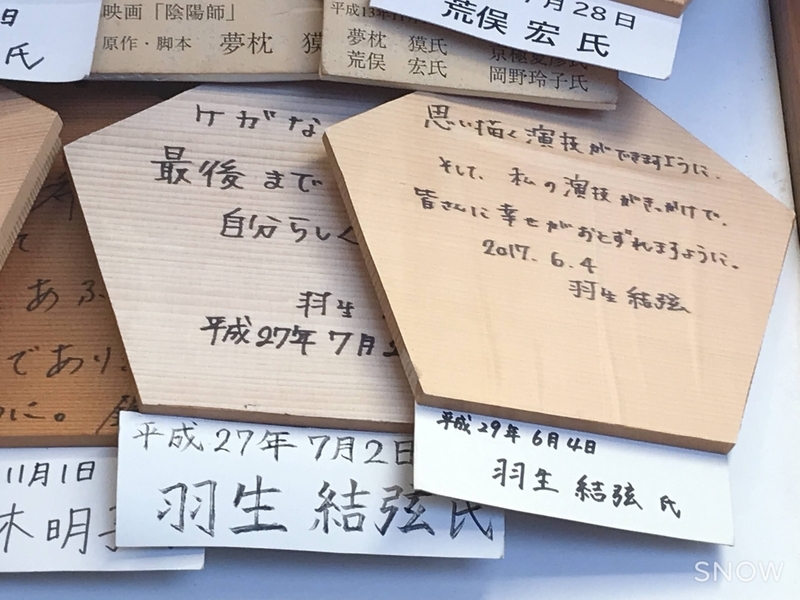 映画「陰陽師」
原作・脚本 夢枕 獏
夢枕 獏氏
荒俣 宏氏
岡野玲子氏
7月28日
荒俣 宏 氏
氏
ケガな
最後まで
自分らしく
羽生
平成27年7月2
平成27年7月2日
羽生 結弦氏
思い描く演技ができますように。
そして、私の演技がきっかけで、
皆さんに幸せがおとずれますように。
2017. 6. 4
羽生 結弦
平成29年6月4日
羽生 結弦 氏
て
あふ
であり
に。
11月1日
木明子
SNOW